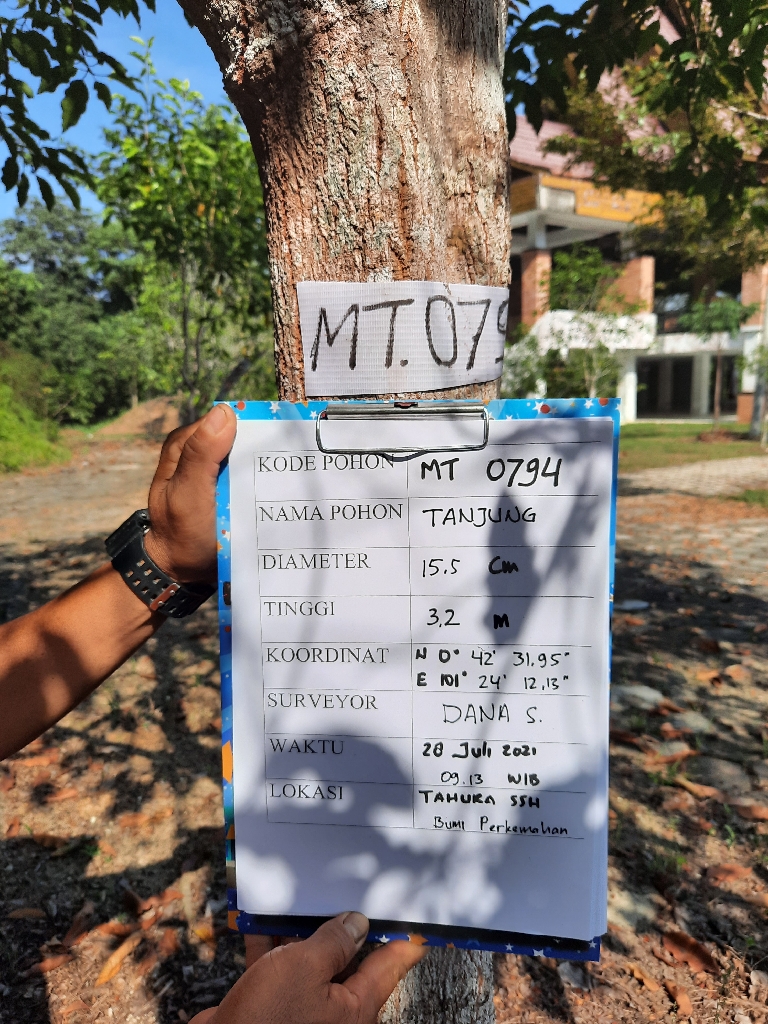 MT.079
KODE POHON MT 0794
NAMA POHON TANJUNG
DIAMETER 15.5 Cm
TINGGI 3,2 m
KOORDINAT N 0° 42' 31,95"
E 101° 24' 12,13"
SURVEYOR DANA S.
WAKTU 28 Juli 2021
09.13 WIB
LOKASI TAHURA SSH
Bumi Perkemahan